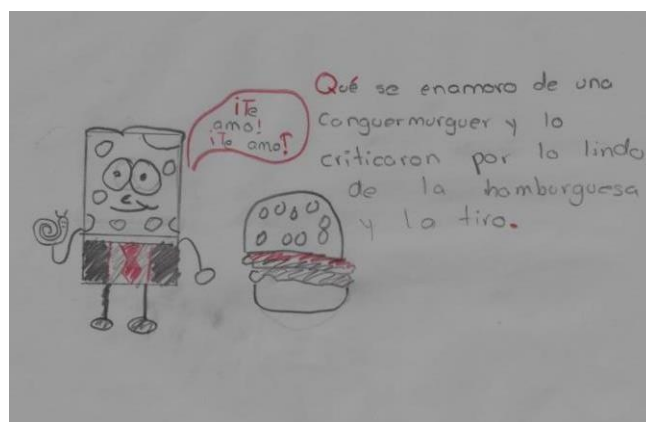 ¡Te
amo!
¡Te amo!
Qué se enamoro de una
canguermurguer y lo
criticaron por lo lindo
de la hamburguesa
y la tiro.